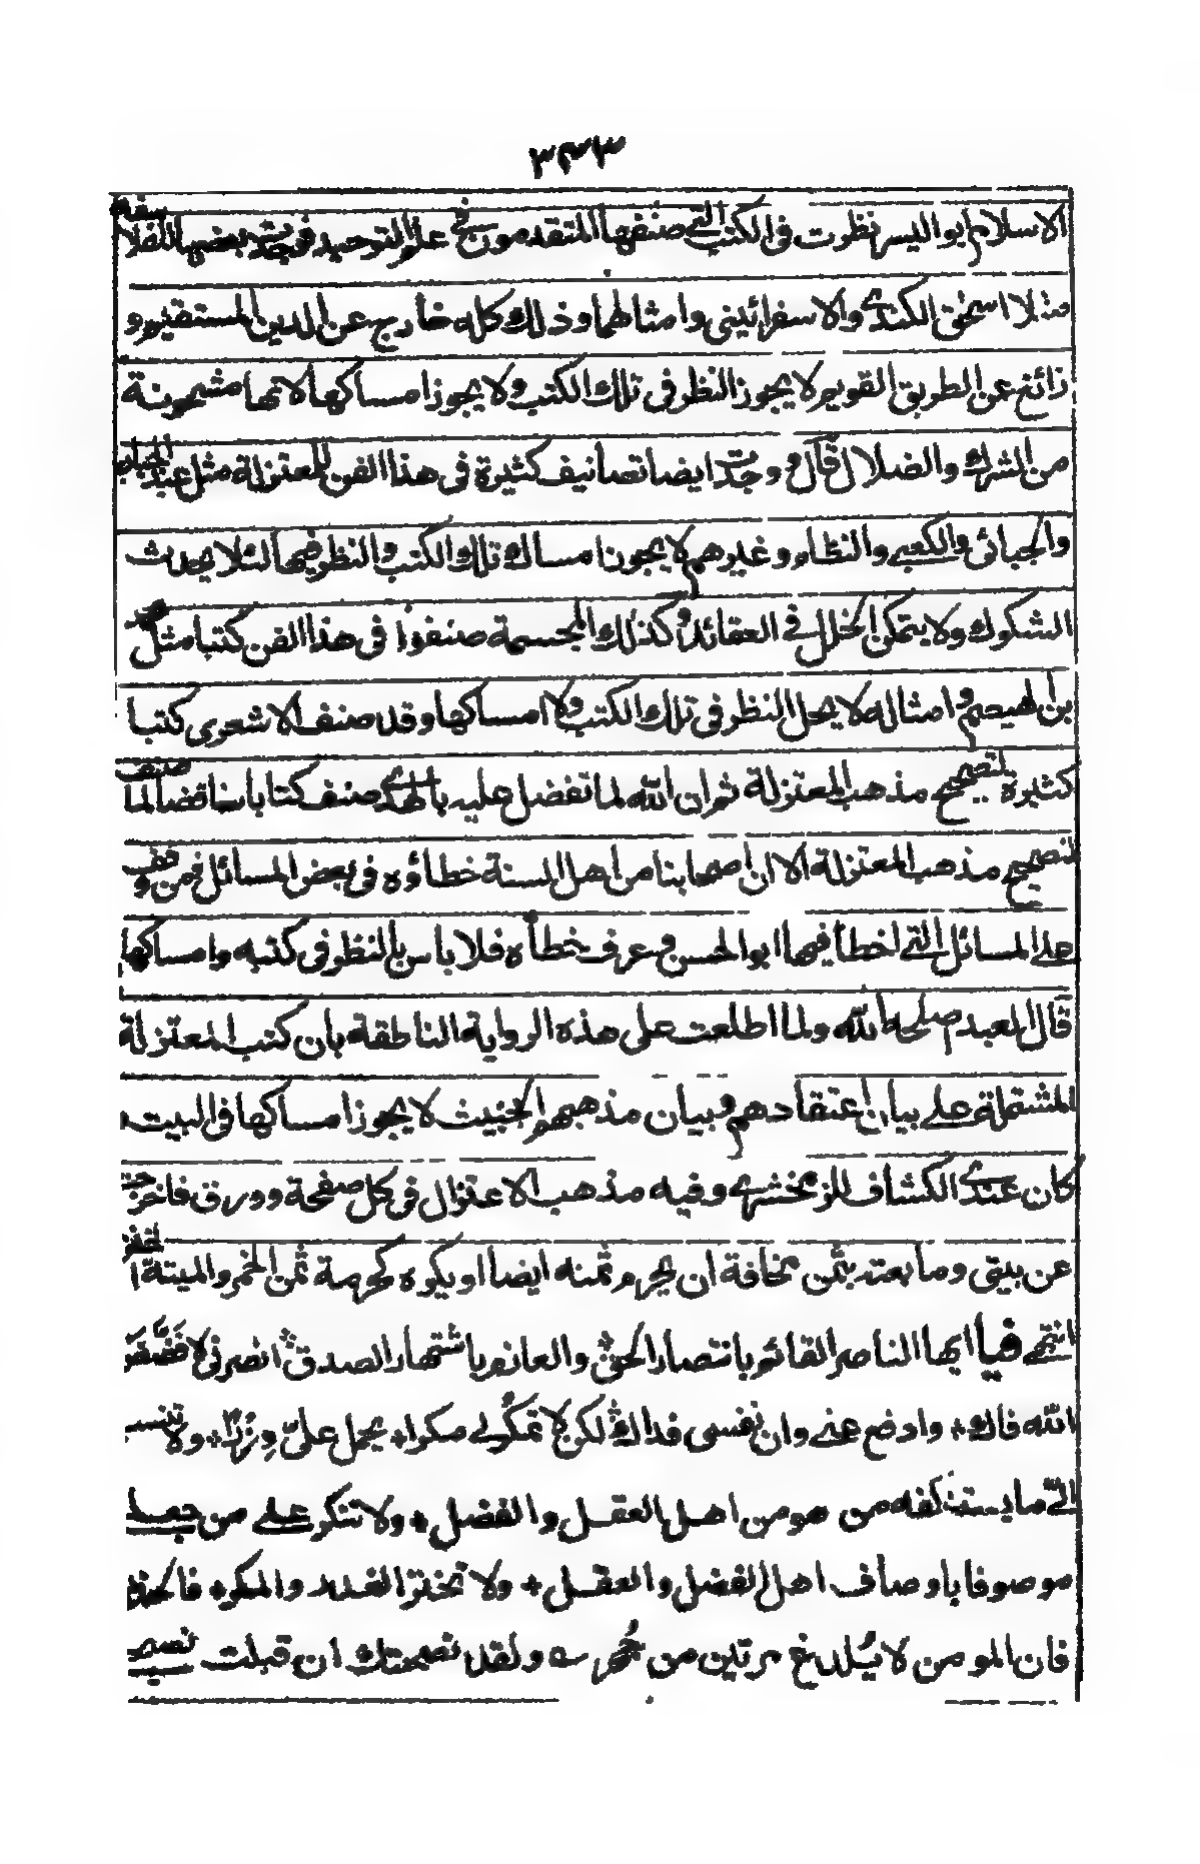 ٣٤٣
الاسلام ابو اليسر نظرت فى الكتب التى صنفها المتقدمون فى علم التوحيد فوجدت بعضها للفلاسفة
مثل اسحٰق الكندى والاسفرائينى وامثالهما وذلك كله خارج عن الدين المستقيم و
زائغ عن الطريق القويم لا يجوز النظر فى تلك الكتب ولا يجوز امساكها لانها مشحونة
من الشرك والضلال قال ووجدت ايضا تصانيف كثيرة فى هذا الفن للمعتزلة مثل عبد الجبار
والجبائى والكعبى والنظام وغيرهم لا يجوز امساك تلك الكتب والنظر فيها لئلا يحدث
الشكوك ولا يتمكن الخلل فى العقائد وكذلك المجسمة صنفوا فى هذا الفن كتبا مثل محمد
بن الهيصم وامثاله لا يحل النظر فى تلك الكتب ولا امساكها وقد صنف الاشعرى كتبا
كثيرة لتصحيح مذهب المعتزلة ثم ان الله لما تفضل عليه بالهدى صنف كتابا ناقضا لما صنف
لتصحيح مذهب المعتزلة الا ان اصحابنا من اهل السنة خطاؤه فى بعض المسائل فمن وقف
على المسائل التى اخطأ فيها ابو الحسن وعرف خطأه فلا باس بالنظر فى كتبه وامساكها
قال العبد اصلحه الله ولما اطلعت على هذه الرواية الناطقة بان كتب المعتزلة
المشتملة على بيان اعتقادهم وبيان مذهبهم الخبيث لا يجوز امساكها فى البيت و
كان عندى الكشاف للزمخشرى وفيه مذهب الاعتزال فى كل صفحة وورق فاخرجته
عن بيتى وما بعته بثمن مخافة ان يحرم ثمنه ايضا او يكره كحرمة ثمن الخمر والميتة
انتهى فيا ايها الناصر القائم بانتصار الحق والعازم باشتهار الصدق انصرنى لا فضض
الله فاك، وادفع عنى وان نفسى فداك لكن لا تمكر لى مكرا، يحمل علىّ وِزْرًا، ولا تنسب
الىّ ما يستنكفه من هو من اهل العقل والفضل، ولا تنكر على من جعل
موصوفا باوصاف اهل الفضل والعقل، ولا تختر الغدر والمكر، فاحذر
فان المومن لا يُلدغ مرتين من جُحر، ولقد نصحتك ان قبلت نصيحتى